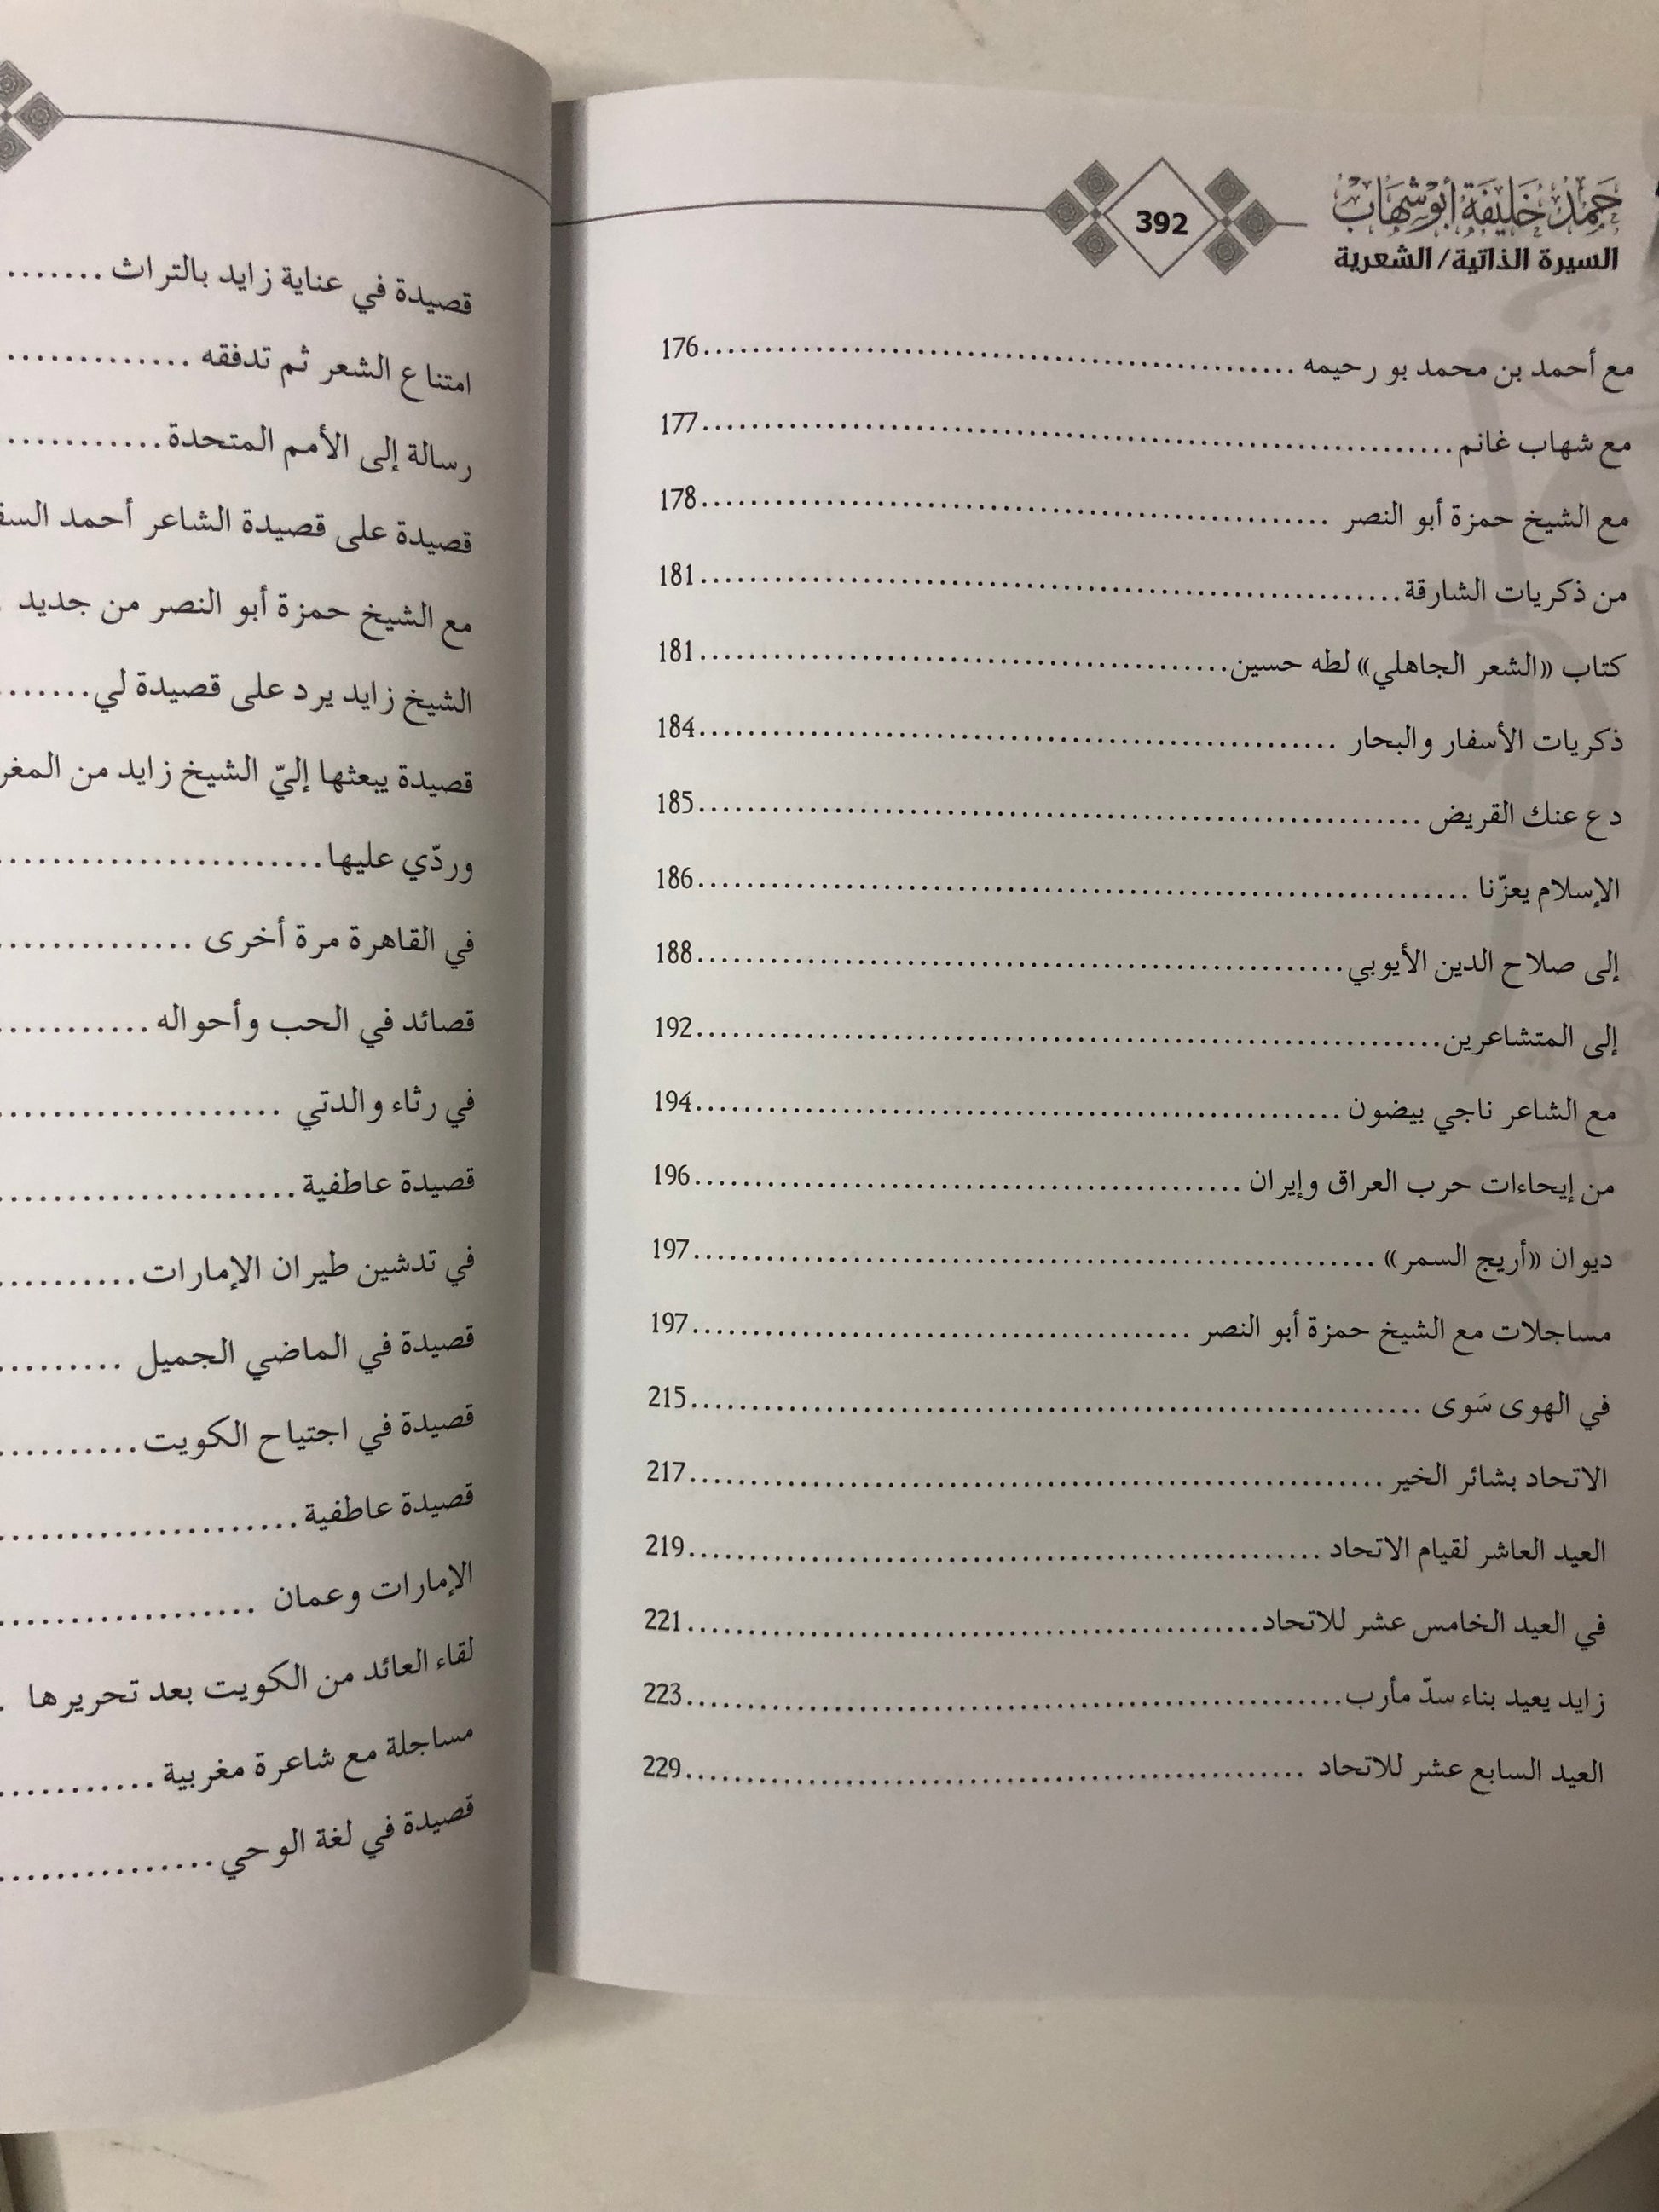 حمد خليفة أبو شهاب
السيرة الذاتية/الشعرية
392
مع أحمد بن محمد بو رحيمه ........ 176
مع شهاب غانم ........ 177
مع الشيخ حمزة أبو النصر ........ 178
من ذكريات الشارقة ........ 181
كتاب «الشعر الجاهلي» لطه حسين ........ 181
ذكريات الأسفار والبحار ........ 184
دع عنك القريض ........ 185
الإسلام يعزّنا ........ 186
إلى صلاح الدين الأيوبي ........ 188
إلى المتشاعرين ........ 192
مع الشاعر ناجي بيضون ........ 194
من إيحاءات حرب العراق وإيران ........ 196
ديوان «أريج السمر» ........ 197
مساجلات مع الشيخ حمزة أبو النصر ........ 197
في الهوى سَوى ........ 215
الاتحاد بشائر الخير ........ 217
العيد العاشر لقيام الاتحاد ........ 219
في العيد الخامس عشر للاتحاد ........ 221
زايد يعيد بناء سدّ مأرب ........ 223
العيد السابع عشر للاتحاد ........ 229
قصيدة في عناية زايد بالتراث ........
امتناع الشعر ثم تدفقه ........
رسالة إلى الأمم المتحدة ........
قصيدة على قصيدة الشاعر أحمد
مع الشيخ حمزة أبو النصر من جديد
الشيخ زايد يرد على قصيدة لي ........
قصيدة يبعثها إليّ الشيخ زايد من
وردّي عليها ........
في القاهرة مرة أخرى ........
قصائد في الحب وأحواله ........
في رثاء والدتي ........
قصيدة عاطفية ........
في تدشين طيران الإمارات ........
قصيدة في الماضي الجميل ........
قصيدة في اجتياح الكويت ........
قصيدة عاطفية ........
الإمارات وعمان ........
لقاء العائد من الكويت بعد تحريرها
مساجلة مع شاعرة مغربية ........
قصيدة في لغة الوحي ........